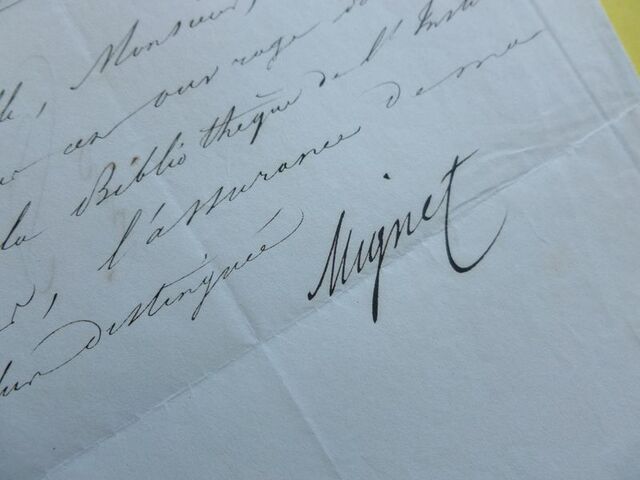 Monsieur,
cet ouvrage
la Bibliothèque de l'Insti
, l'assurance de ma
distinguée
Mignet